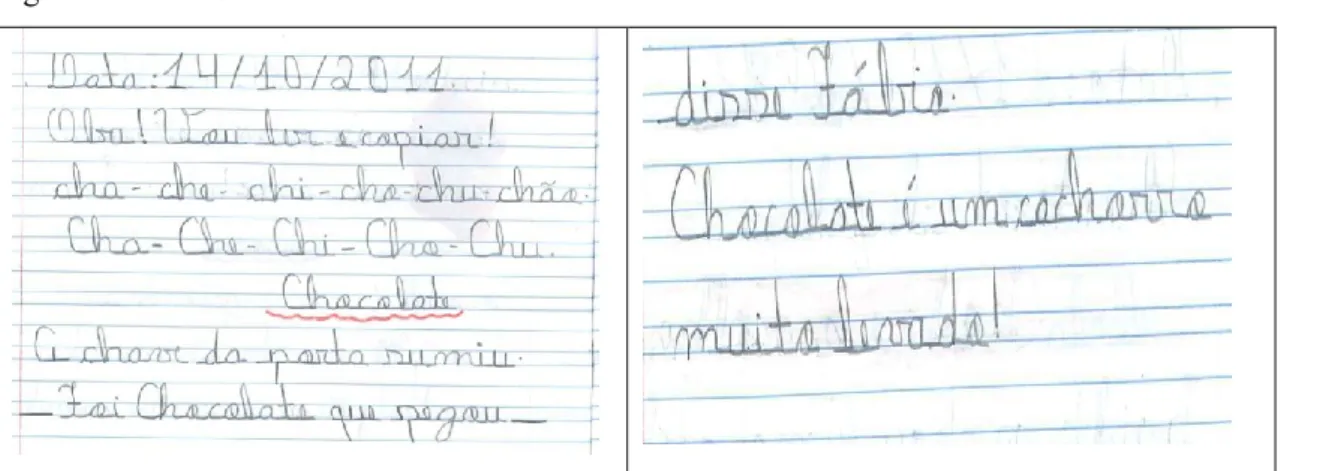 Data: 14/10/2011.
Oba! Vou ler e copiar!
cha - che - chi - cho - chu - chão.
Cha - Che - Chi - Cho - Chu.
Chocolate
A chave da porta sumiu.
— Foi Chocolate que pegou —
disse Fábio.
Chocolate é um cachorro
muito levado!